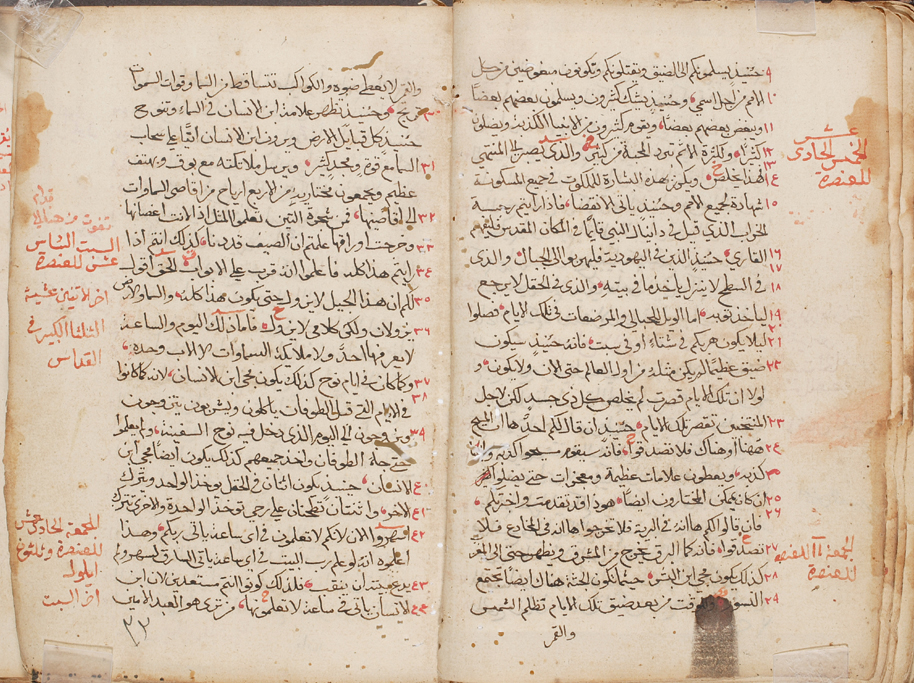 ٩ حينئذ يسلمونكم الى الضيق ويقتلونكم وتكونون مبغوضين من كل
١٠ الامم من اجل اسمي وحينئذ يشك كثيرون ويسلمون بعضهم بعضا
١١ ويبغض بعضهم بعضا ويقوم كثيرون من الانبيا الكذبة ويضلون
١٢ كثيرا ولكثرة الاثم تبرد المحبة من كثير ١٣ والذي يصبر الى المنتهى
١٤ فهذا يخلص ويكرز بهذه البشارة الملكوت في جميع المسكونة
١٥ شهادة لجميع الامم وحينئذ ياتي الانقضا فاذا رايتم رجسة
الخراب الذي قيل في دانيال النبي قائما في المكان المقدس فليفهم
١٦ القاري حينئذ الذين في اليهودية فليهربوا الى الجبال ١٧ والذي
١٨ في السطح لا ينزل ياخذ ما في بيته والذي في الحقل لا يرجع
١٩ لياخذ ثوبه اما الويل للحبالى والمرضعات في تلك الايام فصلوا
٢١ ليلا يكون هربكم في شتاء او في سبت فانه حينئذ سيكون
٢٢ ضيق عظيم لم يكن مثله من اول العالم حتى الان ولا يكون و
لولا ان تلك الايام قصرت لم يخلص كل ذي جسد لكن لاجل
٢٣ المنتخبين تقصر تلك الايام حينئذ ان قال لكم احد ها ان المسيح
٢٤ ههنا او هناك فلا تصدقوا فانه سيقوم مسحو كذبة وانبيا
كذبة ويعطون علامات عظيمة ومعجزات حتى يضلوا
٢٥ ان كان يمكن المختارون ايضا هوذا قد تقدمت واخبرتكم
٢٦ فان قالوا لكم ها انه في البرية فلا تخرجوا ها انه في المخادع فلا
٢٧ تصدقوا فانه كما البرق يخرج من المشرق ويظهر حتى الى المغرب
٢٨ كذلك يكون مجي ابن البشر حيثما تكون الجثة هناك ايضا تجتمع
٢٩ النسور وللوقت من بعد ضيق تلك الايام تظلم الشمس
والقمر
عشر
الخميس الحادي
للعنصرة
الجمعة
للعنصرة
والقمر لا يعطي ضوه والكواكب تتساقط من السما وقوات السموات
٣٠ ترتج وحينئذ تظهر علامة ابن الانسان في السماء وتنوح
حينئذ كل قبايل الارض ويرون ابن الانسان اتيا على سحاب
٣١ السما مع قوة ومجد كثير ويرسل ملائكته مع بوق وهتف
عظيم ويجمعون مختاريه من الاربع ارياح من اقاصي السماوات
٣٢ الى اقاصيها فمن شجرة التين تعلموا المثل اذا لانت اغصانها
٣٣ وخرجت اوراقها علمتم ان الصيف قد دنا كذلك انتم اذا
٣٤ رايتم هذا كله فاعلموا انه قرب على الابواب الحق اقول
٣٥ لكم ان هذا الجيل لا يزول حتى يكون هذا كله والسما والارض
٣٦ يزولان ولكن كلامي لا يزول فاما ذلك اليوم والساعة
لا يعرفها احد ولا ملايكة السماوات الا الاب وحده
٣٧ وكما كان في ايام نوح كذلك يكون مجي ابن الانسان ٣٨ لانه كما كانوا
في الايام التي قبل الطوفان ياكلون ويشربون يتزوجون
٣٩ ويزوجون الى اليوم الذي دخل فيه نوح السفينة ولم يعلموا
حتى جا الطوفان واخذ جميعهم كذلك يكون ايضا مجي ابن
٤٠ الانسان حينئذ يكون اثنان في الحقل يوخذ الواحد ويترك
٤١ الاخر واثنتان تطحنان على رحى توخذ الواحدة والاخرى تترك
٤٢ اسهروا الان لانكم لا تعلمون في اي ساعة ياتي ربكم وهذا
اعلموه انه لو علم رب البيت في اي ساعة ياتي السارق لسهر ولم
٤٣ يدع بيته ان ينقب فلذلك كونوا انتم مستعدين لان ابن
٤٤ الانسان ياتي في ساعة لا تعلمونها من ترى هو العبد الامين
السبت السادس
عشر للعنصرة
اخر لاثنين عشية
الثلثا الكبير في
القداس
الجمعة الحادي عشر
للعنصرة
ايلول
اخر السبت